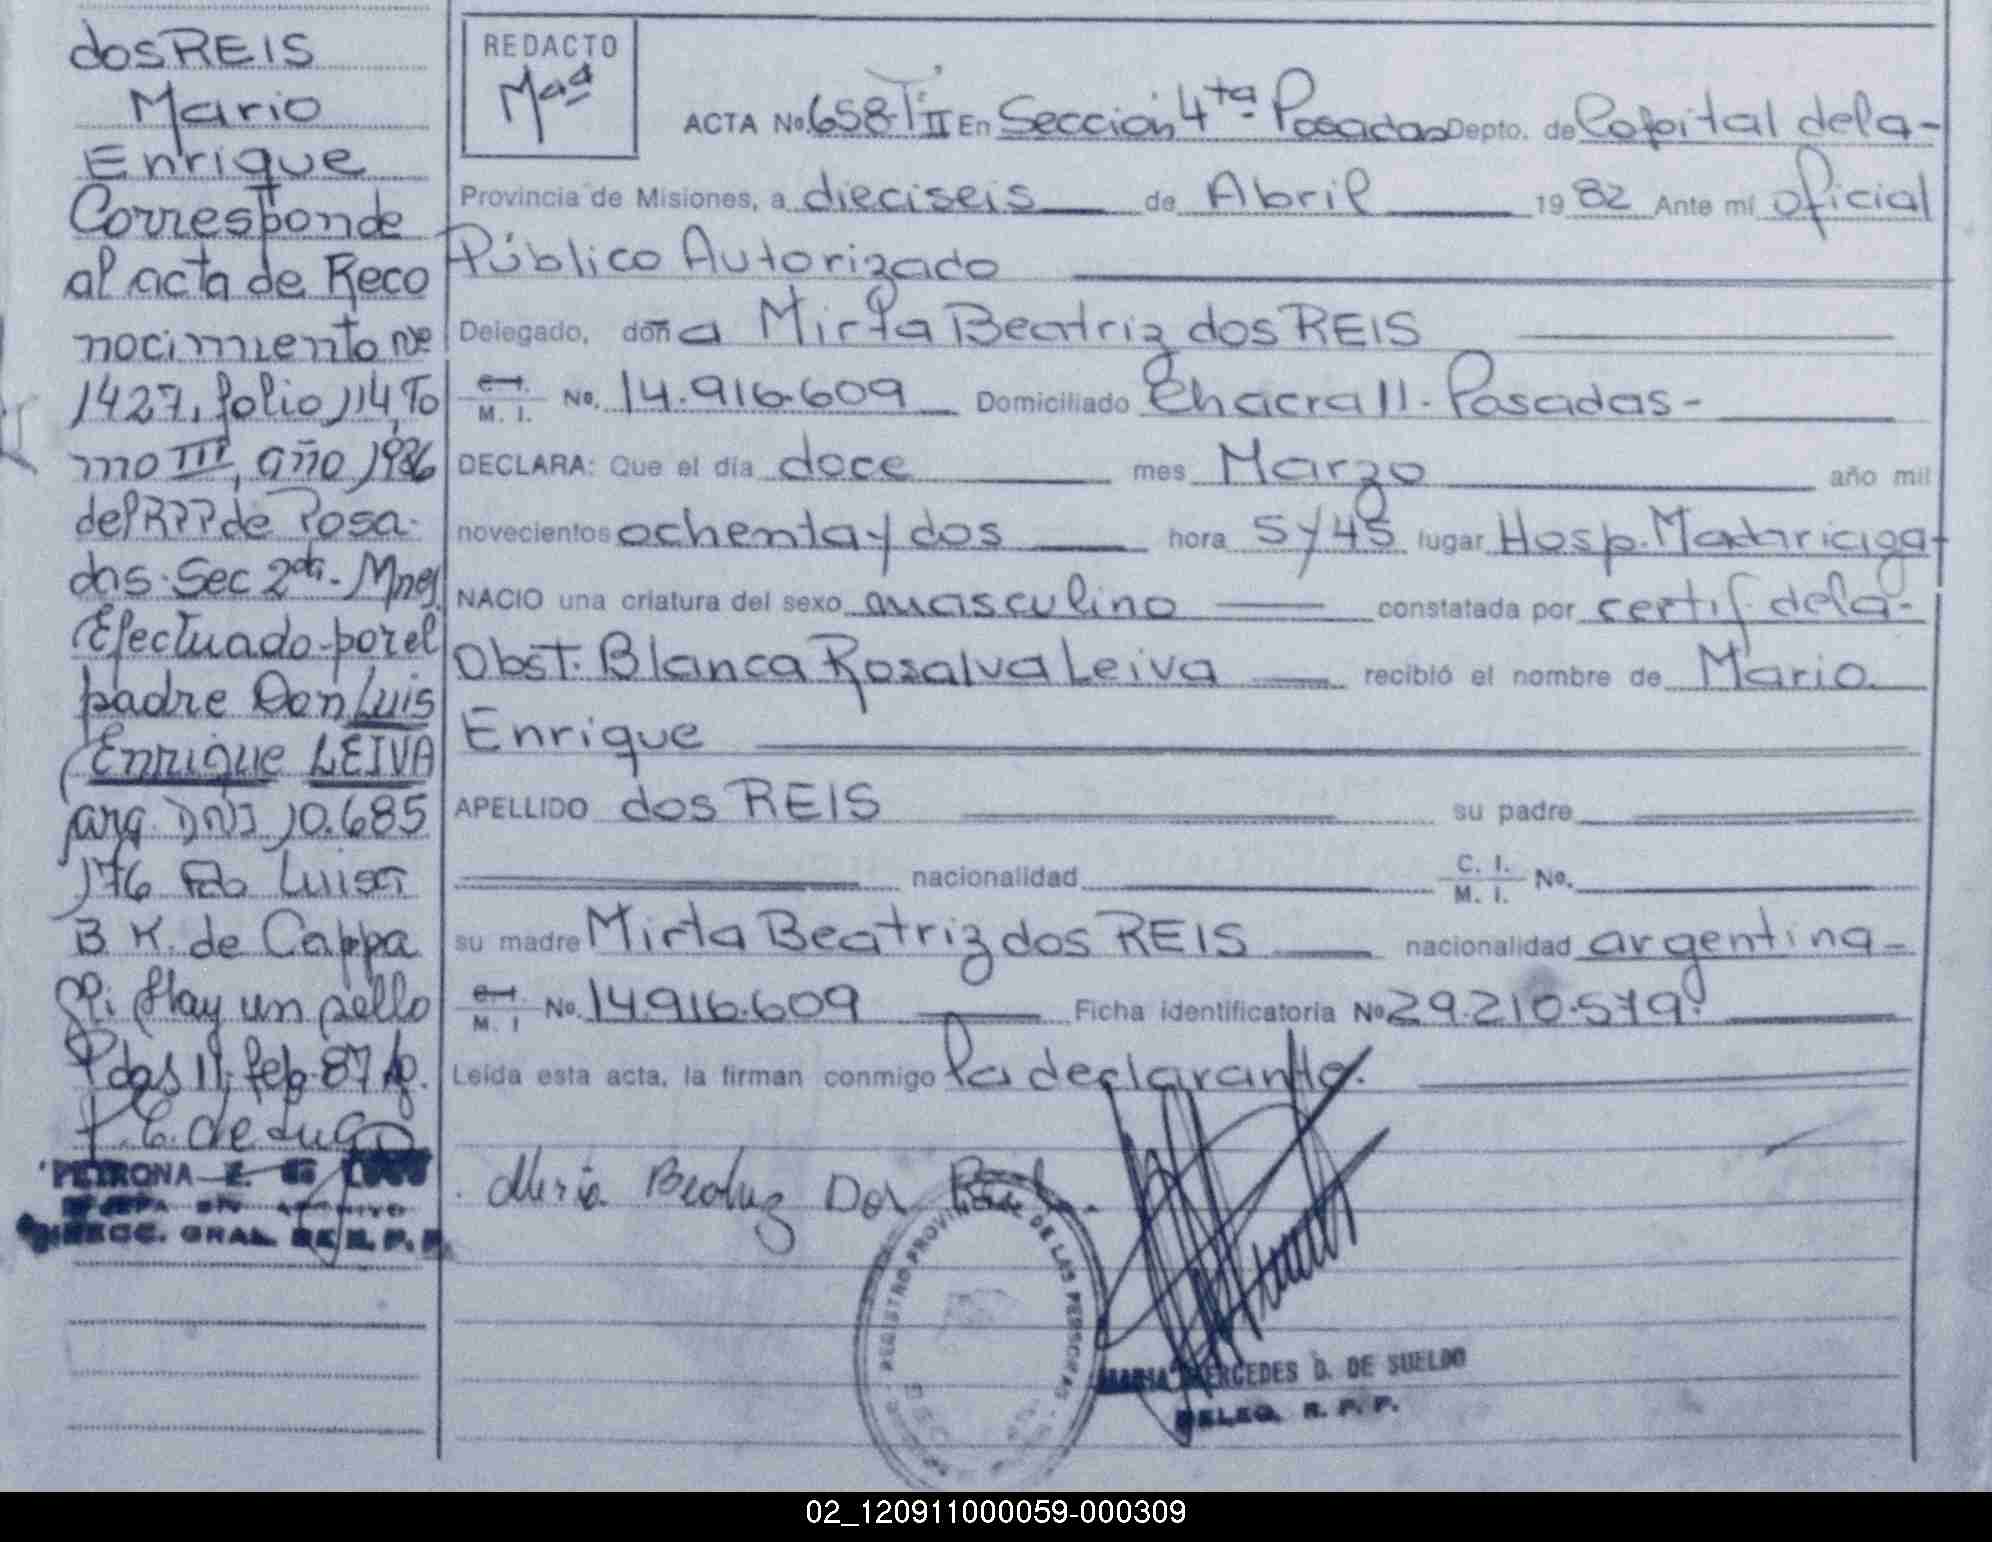 dos REIS
Mario
Enrique
Corresponde
al acta de Reco
nocimiento nº
1427, folio 114, To
mo III, año 1986
del R P P de Posa-
das. Sec 2da. Mnes.
Efectuado por el
padre Don Luis
Enrique LEIVA
arg. DNI 10.685
176 Fdo Luisa
B K. de Cappa
Hay un sello
Pdas 11, feb. 87
P. E. de Lugo
PETRONA E. DE LUGO
JEFA DIV ARCHIVO
DIRECC. GRAL. DE R. P. P.
REDACTO
Mª
ACTA No. 658 T II En Sección 4ta Posadas Depto. de Capital de la-
Provincia de Misiones, a dieciseis de Abril 1982 Ante mí oficial
Público Autorizado
Delegado, doña Mirta Beatriz dos REIS
C. I. M. I. No. 14.916.609 Domiciliado Chacra 11. Posadas-
DECLARA: Que el día doce mes Marzo año mil
novecientos ochenta y dos hora 5 y 45 lugar Hosp. Madariaga
NACIO una criatura del sexo masculino constatada por certif. de la-
Obst. Blanca Rosalva Leiva recibió el nombre de Mario
Enrique
APELLIDO dos REIS su padre
nacionalidad C. I. M. I. No.
su madre Mirta Beatriz dos REIS nacionalidad argentina-
C. I. M. I No. 14.916.609 Ficha identificatoria No 29.210.579.
Leída esta acta, la firman conmigo la declarante.
Mirta Beatriz Dos Reis
REGISTRO PROVINCIAL DE LAS PERSONAS
MARIA MERCEDES D. DE SUELDO
DELEG. R. P. P.
02_120911000059-000309